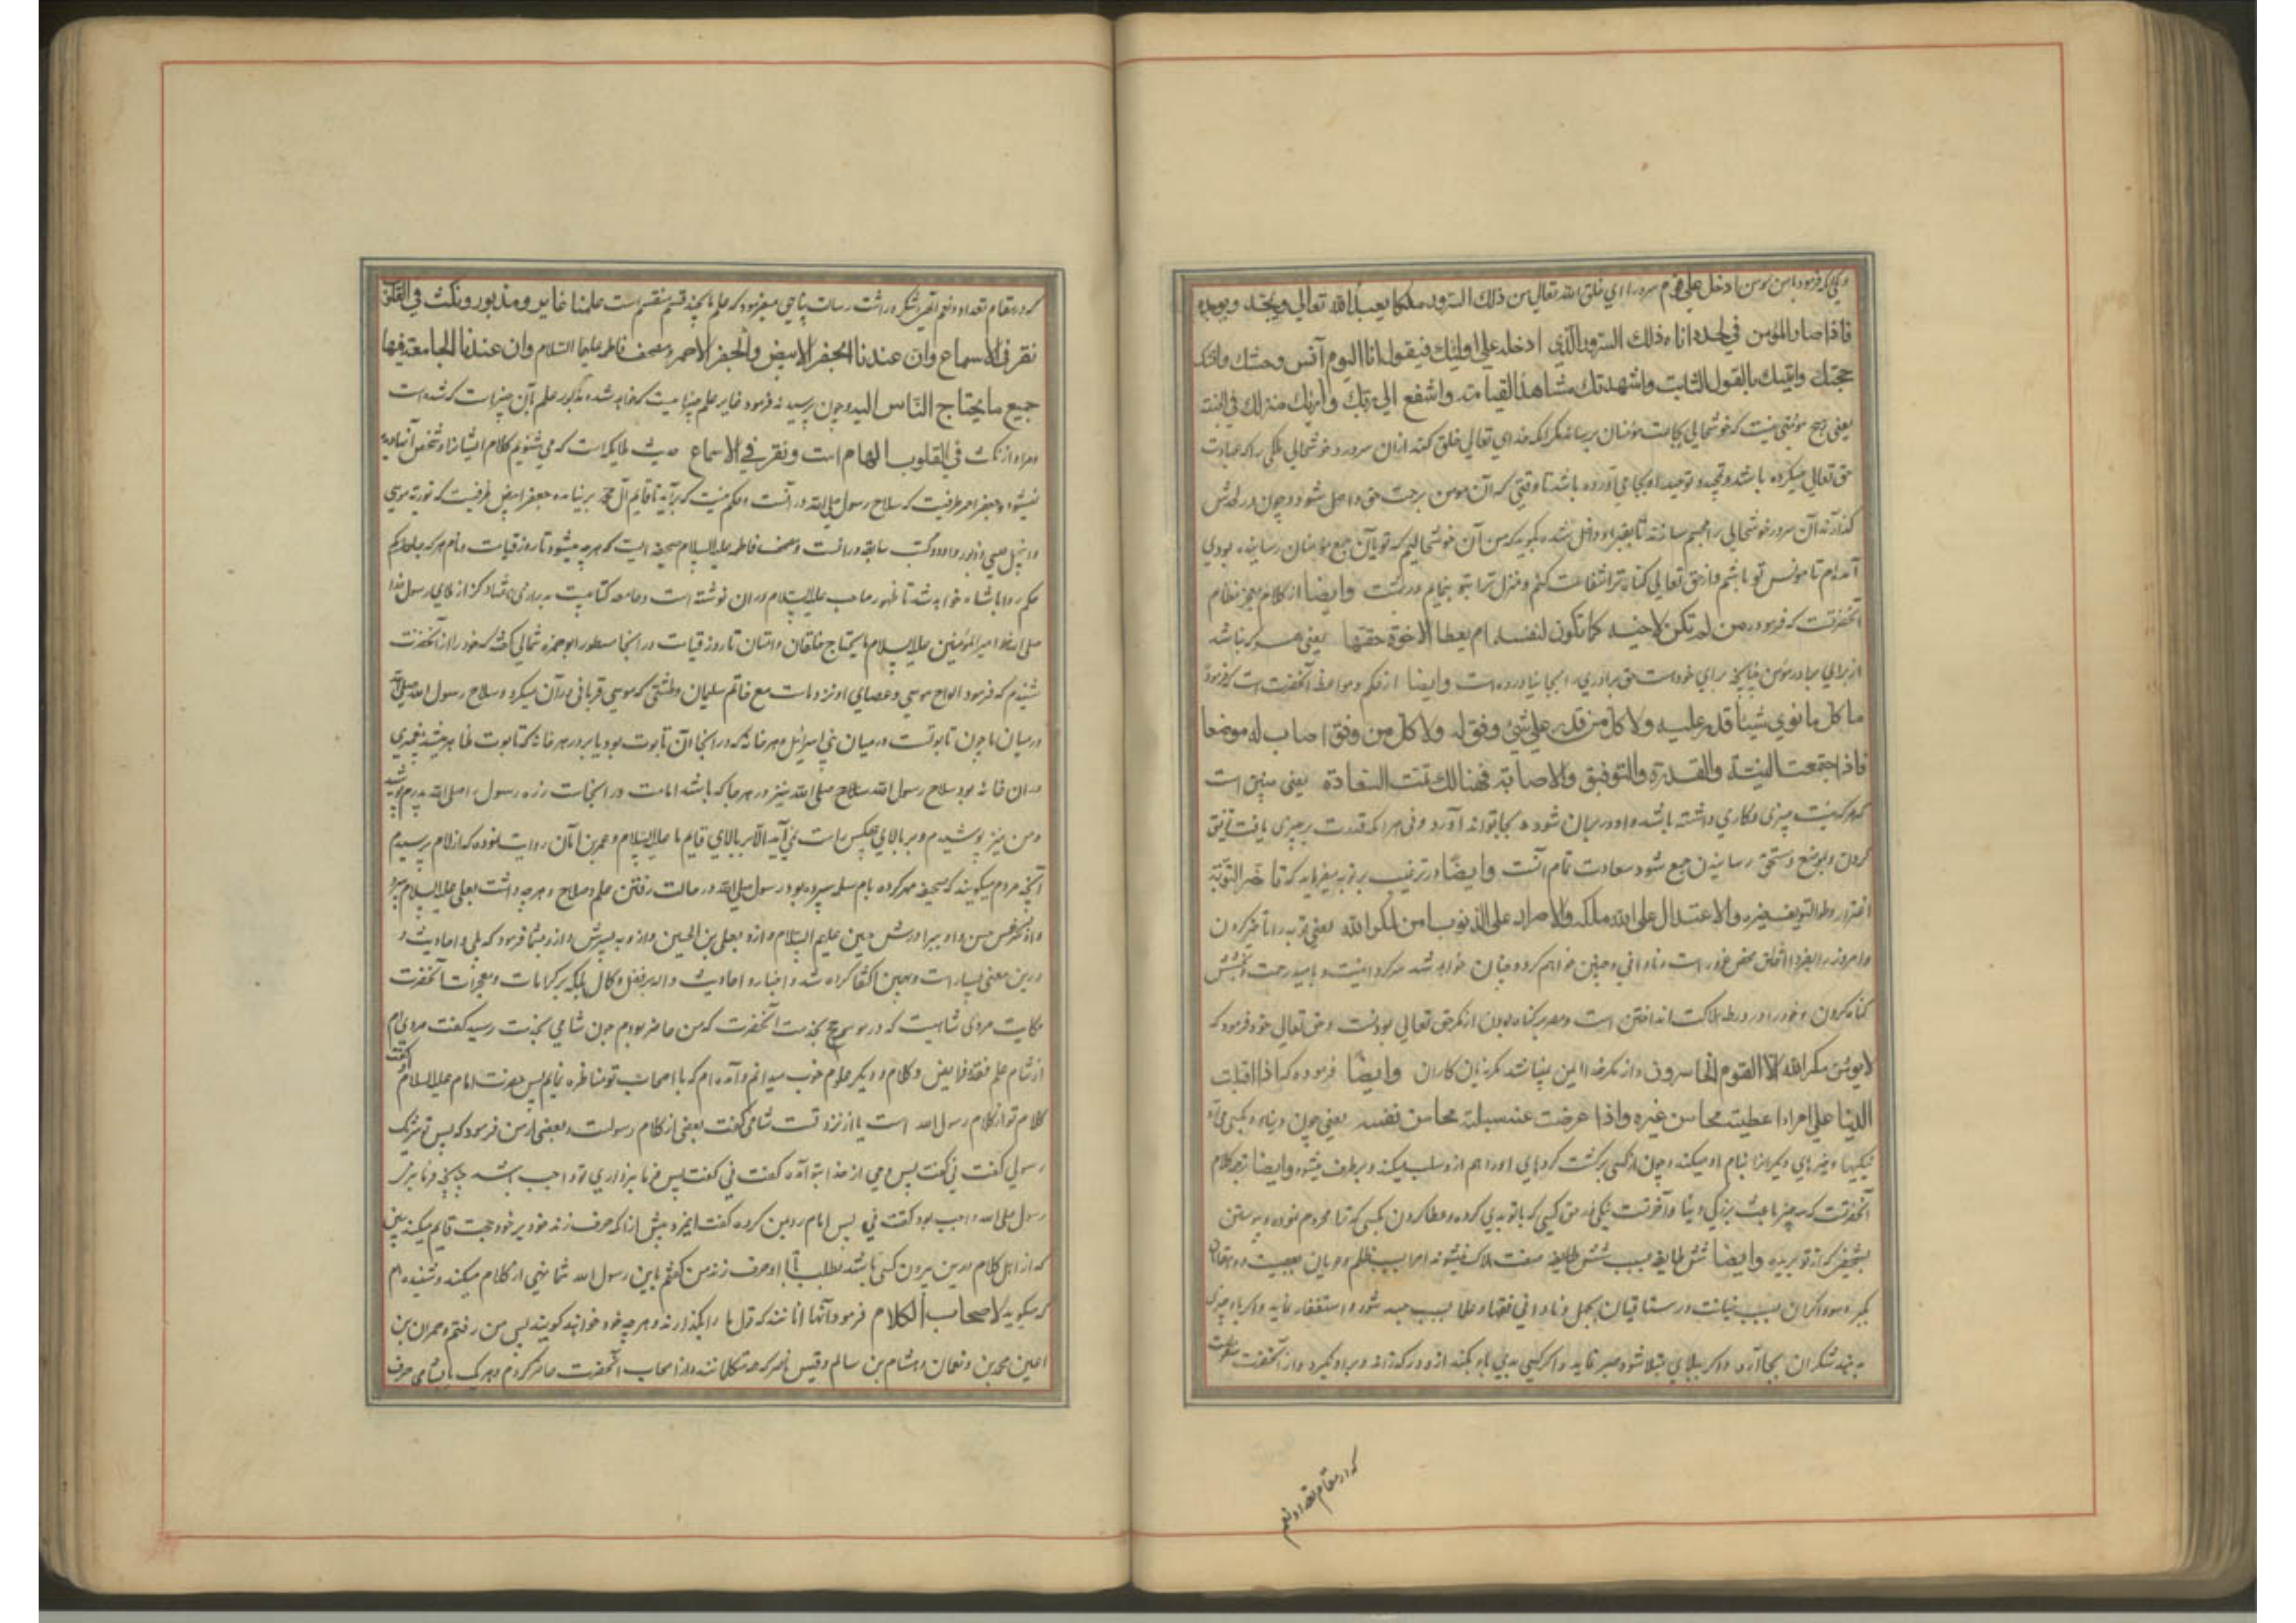 دیگر آنکه فرمود ما من مؤمن ادخل علی قوم سرورا الا خلق الله تعالی من ذلك السرور ملكا يعبد الله تعالی ويمجده ويوحده
فاذا صار المؤمن في لحده اتاه ذلك السرور الذي ادخله علی اولئك فيقول انا اليوم آنس وحشتك والقنك
حجتك واثبتك بالقول الثابت واشهدتك مشاهد القيامة واشفع الی ربك وأريك منزلك في الجنة
یعنی هیچ مؤمنی نیست که خوشحالی بجماعت مؤمنان برساند مگر آنکه خدای تعالی خلق کند از آن سرور و خوشحالی ملکی را که عبادت
حق تعالی میکرده باشد و تمجید و توحید او بجا می آورده باشد تا وقتی که آن مومن برحمت حق واصل شود و چون در لحدش
گذارند آن سرور خوشحالی را مجسم سازند تا بقبر او داخل شده بگوید که من آن خوشحالیم که تو بآن جمع مؤمنان رسانیده بودی
آمده ام تا مونس تو باشم و از حق تعالی گناه ترا شفاعت کنم و منزل ترا بتو بنمایم در بهشت وایضا از کلام معجز نظام
آنحضرتست که فرمود من لم تكن لاخيه كما تكون لنفسه لم يعط الاخوة حقها یعنی هر که نباشد
از برای برادر مؤمن چنانچه برای خود است حق برادری را بجا نیاورده است وایضا از حکم و مواعظ آنحضرت است که فرمود
ما كل ما نوي شيئا قدر عليه ولا كل من قدر علی شئ وفق له ولا كل من وفق اصاب له موضعا
فاذا اجتمعت النية والقدرة والتوفيق والاصابة فهنالك تمت السعادة یعنی چنین است
که هر که نیت چیزی و کاری داشته باشد
کردن و بموضع و مستحق رسانیدن جمع شود سعادت تمام آنست وایضا در ترغیب بر توبه میفرماید که تاخير التوبة
اغترار وطول التسويف حيره والاعتدال علی الله هلكه والاصرار علی الذنوب امن لمكر الله یعنی توبه را تاخیر کردن
گناه کردن و خود را در ورطه هلاکت انداختن است و مصر بر گناه بودن از مکر حق تعالی بودنست و حق تعالی خود فرموده که
لا يومن مكر الله الا القوم الخاسرون و از مکر خدا ایمن نمیباشند مگر زیان کاران وایضا فرموده که اذا اقبلت
الدنيا علی امراء اعطيته محاسن غيره واذا عرضت عنه سلبته محاسن نفسه یعنی چون دنیا رو بکسی می آرد
نیکیها و خیرهای دیگرانرا بنام او میکند و چون از کسی برگشت کردهای او را هم ازو سلب میکند و برطرف میشود وایضا از کلام
آنحضرتست که سه چیز باعث بزرگی دنیا و آخرتست نیکی در حق کسی که با تو بدی کرده و عطا کردن بکسی که ترا محروم نموده و پیوستن
بشخصی که از تو بریده وایضا شش طایفه بسبب شش صفت هلاک میشوند امرا بسبب ظلم و عربان بعصبیت و دهقانان
بکبر و سوداگران بسبب خیانت و رستاقیان بجهل و نادانی و فقها و علما بسبب حسد
به بیند شکر آن بجا آرد و اگر ببلای مبتلا شود صبر نماید و اگر کسی بدی باو بکند ازو درگذراند
که در مقام تعداد نعم
که در مقام تعداد نعم میفرمود که علم ما بچند قسم منقسم است علمنا غابر ومزبور ونكت في القلوب
نقر في الاسماع وان عندنا الجفر الابيض والجفر الاحمر ومصحف فاطمه عليها السلام وان عندنا الجامعة فيها
جميع ما يحتاج الناس اليه و چون پرسیدند فرمود غابر علم چیزهاییست که خواهد شد مزبور علم آن چیزهاست که شده است
و مراد از نکت في القلوب الهام است ونقر في الاسماع حدیث ملایکه است که می شنویم کلام ایشانرا و شخص آنها دیده
نمیشود و جفر احمر ظرفیست که سلاح رسول صلی الله در آنست و حکم نیست که برآید تا قایم آل محمد بر نیاید و جفر ابیض ظرفیست که توریه موسی
و انجیل عیسی و زبور داود و کتب سابقه در آنست و مصحف فاطمه علیها السلام صحیفه ایست که هر چه میشود تا روز قیامت و نام هر که
حکمروا باشاه خواهد شد تا ظهور صاحب علیه السلام در آن نوشته است و جامعه کتابیست بدرازی هفتاد گز از املای رسول خدا
صلی الله و خط امیر المؤمنین علیه السلام ما یحتاج خلقان و امتان تا روز قیامت در آنجا مسطور ابو حمزه ثمالی گفته که خود از آنحضرت
شنیدم که فرمود الواح موسی و عصای او نزد ماست مع خاتم سلیمان وطشتی که موسی قربانی در آن میکرد و سلاح رسول الله صلی الله
در میان ما چون تابوتست در میان بنی اسرائیل و هر خانه که در آنجا آن تابوت بود یا بر در هر خانه که تابوت ظاهر میشد پیغمبری
در آن خانه بود سلاح رسول الله صلی الله نیز در هر جا که باشد امامت در آنجاست زره رسول صلی الله پدرم پوشید
و من نیز پوشیدم و بر بالای هیچکس راست نمی آید الا بر بالای قایم ما علیه السلام و عمر بن ابان روایت نموده که از امام پرسیدم
آنچه مردم میگویند که صحیفه مهر کرده بام سلمه سپرده بود رسول صلی الله در حالت رفتن علم و سلاح و هر چه داشت بعلی علیه السلام سپرد
و او بحسن و او ببرادرش حسین علیهم السلام و ازو بعلی بن الحسین و ازو به پسرش و ازو بشما فرمود که بلی و احادیث
درین معنی بسیار است و بهمین اکتفا کرده شد و اخبار و احادیث دال بر فضل و کمال بلکه بر کرامات و معجزات آنحضرت
حکایت مردی شامیست که در موسم حج بخدمت آنحضرت که من حاضر بودم چون شامی بخدمت رسید گفت مردی ام
از شام علم فقه و فرایض و کلام و دیگر علوم خوب میدانم و آمده ام که با اصحابت تو مناظره نمایم پس حضرت امام علیه السلام گفت
کلام تو از کلام رسول الله است یا از نزد تست شامی گفت بعضی از کلام رسولست و بعضی از من فرمود که پس تو شریک
رسولی گفت نی گفت پس وحی از خدا بتو آمده گفت نی گفت پس فرمانبرداری تو واجب باشد چنانچه فرمانبری
رسول صلی الله واجب بود گفت نی پس امام رو بمن کرده گفت اینمرد پیش از آنکه حرف زند خود بر خود حجت قایم میکند ببین
که از اهل کلام درین بیرون کسی باشد بطلب تا با او حرف زند من گفتم یابن رسول الله شما نهی از کلام میکنید و شنیده ام
که میگویید لاصحاب الكلام فرمود آنها آنانند که قول ما را بگذارند و هر چه خود خواهند گویند پس من رفتم و حمران بن
اعین و محمد بن نعمان و هشام بن سالم و قیس ناصر که همه متکلمانند و از اصحاب آنحضرت حاضر کردم و هر یک با شامی حرف